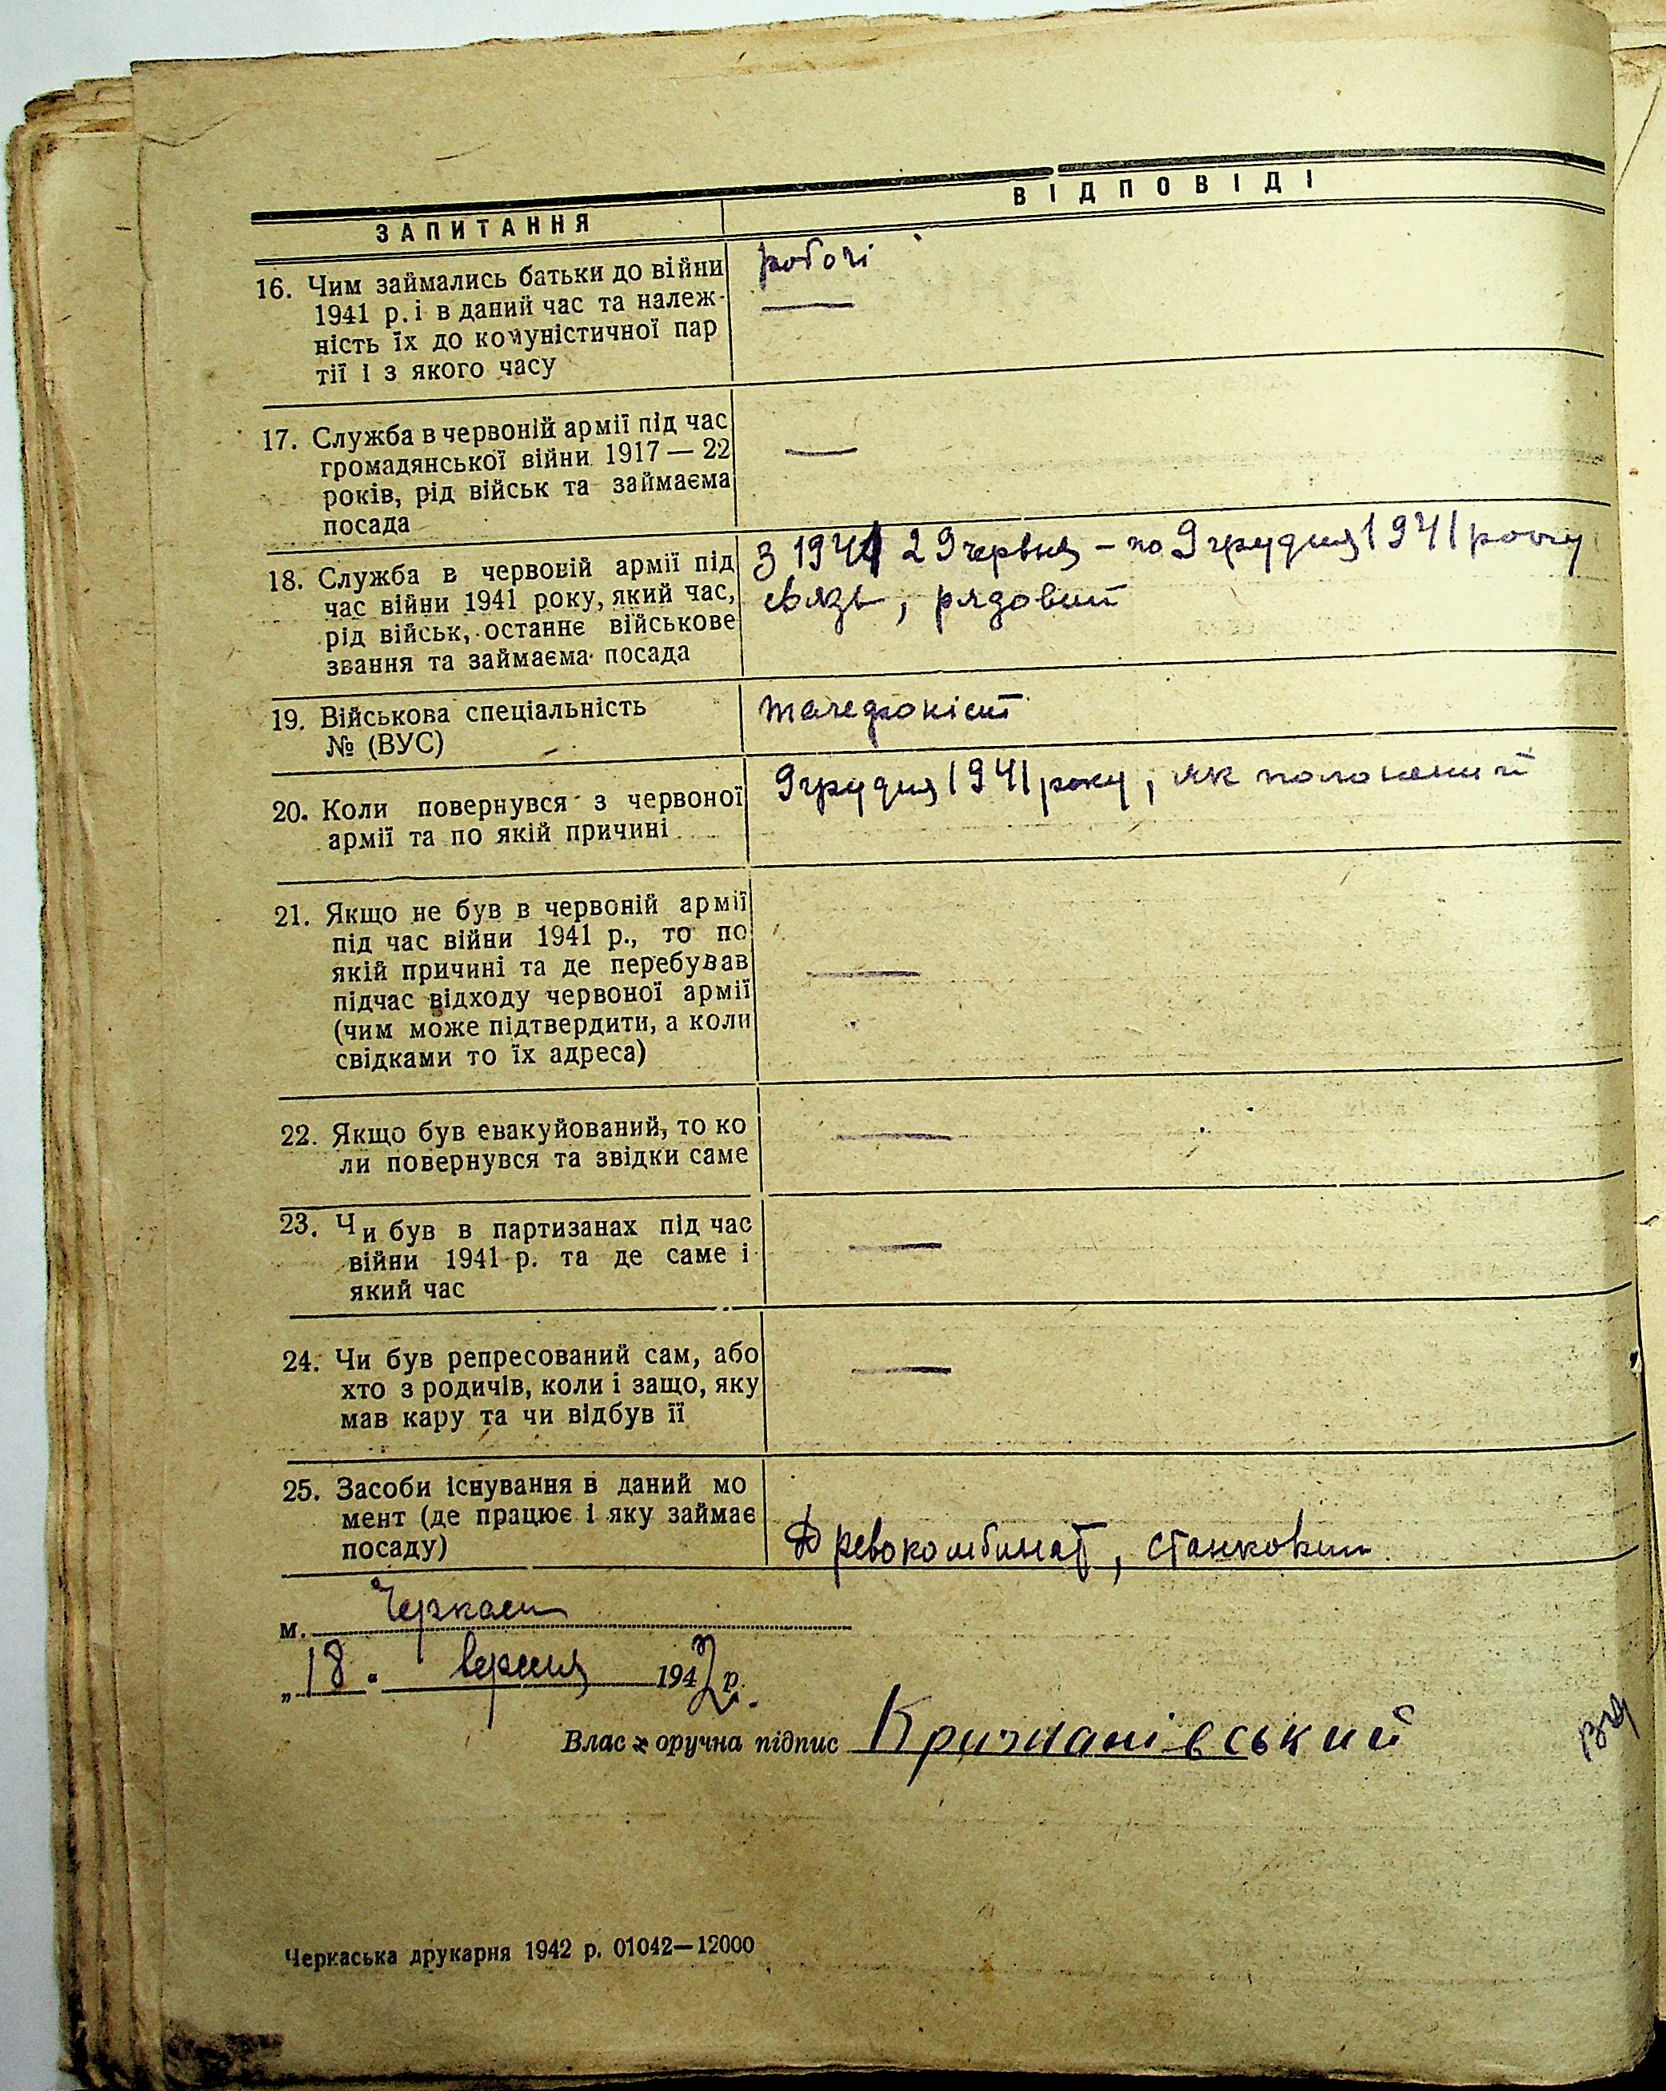 ЗАПИТАННЯ
ВІДПОВІДІ
16. Чим займались батьки до війни
1941 р. і в даний час та належ-
ність їх до комуністичної пар
тії і з якого часу
робочі
—
17. Служба в червоній армії під час
громадянської війни 1917 — 22
років, рід військ та займаєма
посада
—
18. Служба в червоній армії під
час війни 1941 року, який час,
рід військ, останнє військове
звання та займаєма посада
З 1941 29 червня – по 9 грудня 1941 року
связь, рядовий
19. Військова спеціальність
№ (ВУС)
телефоніст
20. Коли повернувся з червоної
армії та по якій причині
9 грудня 1941 року, як полонений
21. Якщо не був в червоній армії
під час війни 1941 р., то по
якій причині та де перебував
підчас відходу червоної армії
(чим може підтвердити, а коли
свідками то їх адреса)
—
22. Якщо був евакуйований, то ко
ли повернувся та звідки саме
—
23. Чи був в партизанах під час
війни 1941 р. та де саме і
який час
—
24. Чи був репресований сам, або
хто з родичів, коли і защо, яку
мав кару та чи відбув її
—
25. Засоби існування в даний мо
мент (де працює і яку займає
посаду)
Древокомбинат, станковий
м. Черкаси
„18" вересня 1942 р.
Власноручна підпис
Черкаська друкарня 1942 р. 01042—12000